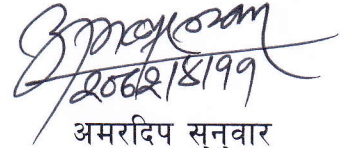 २०६२।४।११
अमरदिप सुनुवार